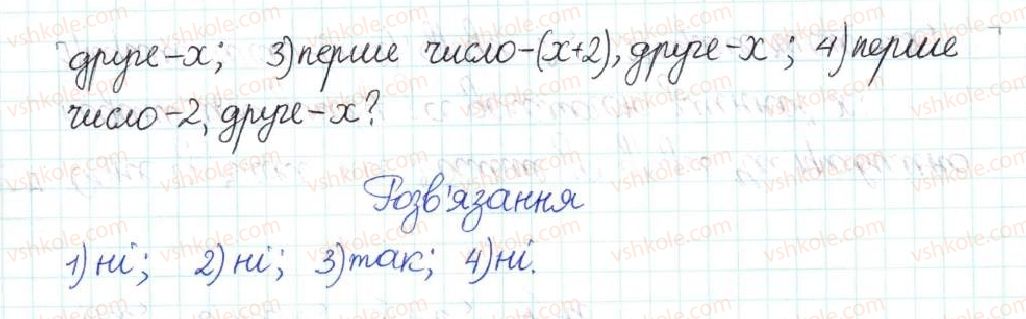 друге-x; 3)перше число-(x+2), друге-x; 4)перше
число-2, друге-x?
Розв'язання
1)ні; 2)ні; 3)так; 4)ні.